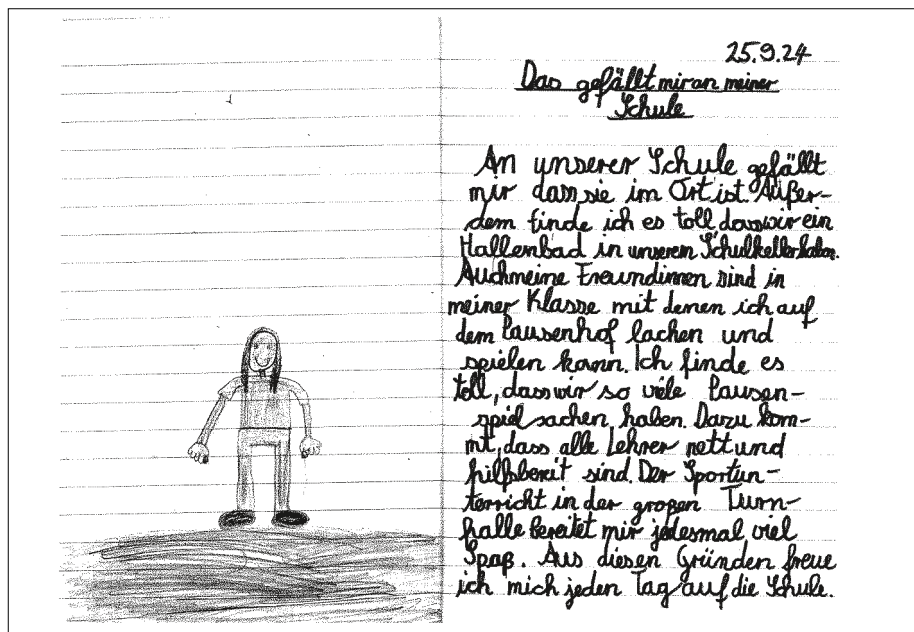 25.9.24
Das gefällt mir an meiner
Schule
An unserer Schule gefällt
mir dass sie im Ort ist. Außer-
dem finde ich es toll dass wir ein
Hallenbad in unserem Schulkeller haben.
Auch meine Freundinnen sind in
meiner Klasse mit denen ich auf
dem Pausenhof lachen und
spielen kann. Ich finde es
toll, dass wir so viele Pausen-
spielsachen haben. Dazu kom-
mt, dass alle Lehrer nett und
hilfsbereit sind. Der Sportun-
terricht in der großen Turn-
halle bereitet mir jedesmal viel
Spaß. Aus diesen Gründen freue
ich mich jeden Tag auf die Schule.